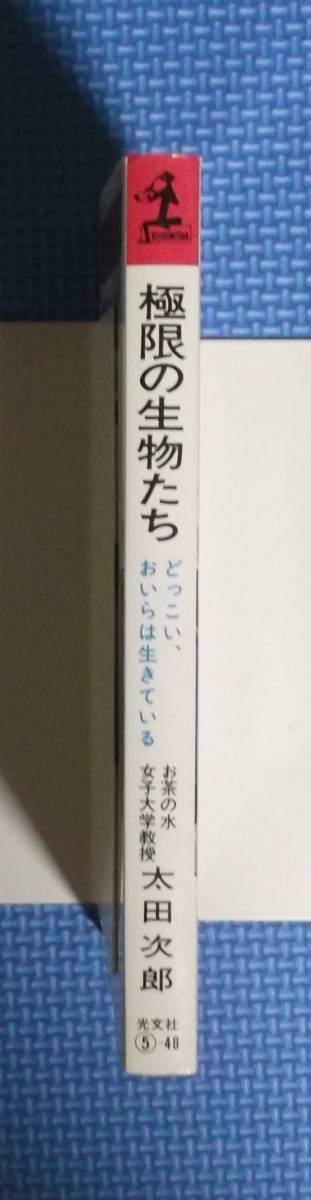 極限の生物たち
どっこい、
おいらは生きている
お茶の水
女子大学教授
太田次郎
光文社
⑤-48